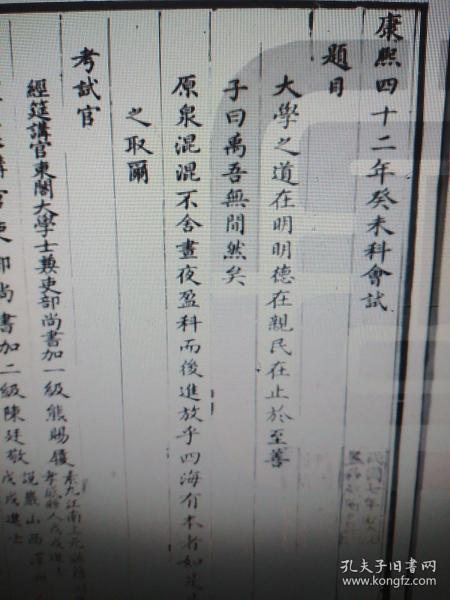 康熙四十二年癸未科會試
題目
大學之道在明明德在親民在止於至善
子曰禹吾無間然矣
原泉混混不舍晝夜盈科而後進放乎四海有本者如是
之取爾
考試官
經筵講官東閣大學士兼吏部尚書加一級熊賜履
講官吏部尚書加二級陳廷敬
說巖山西澤州
戊戌進士
孔夫子旧书网
www.kongfz.com